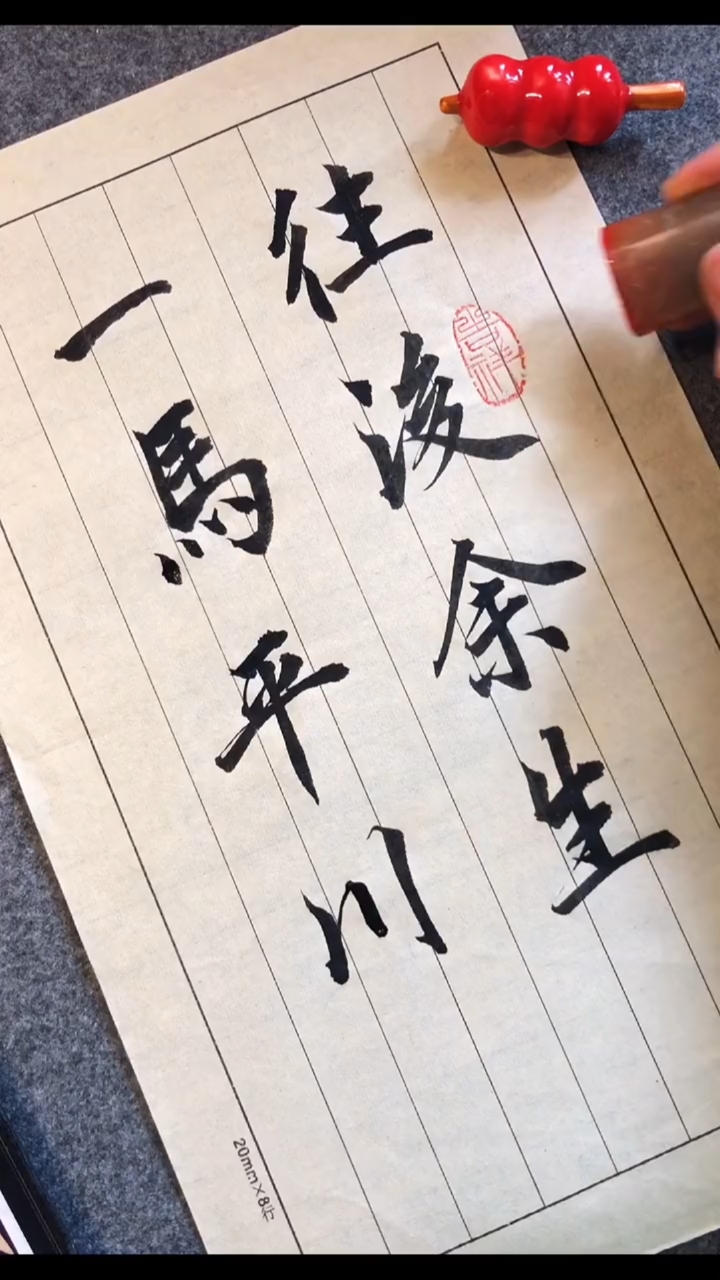 往後余生
一馬平川
20mm×8行